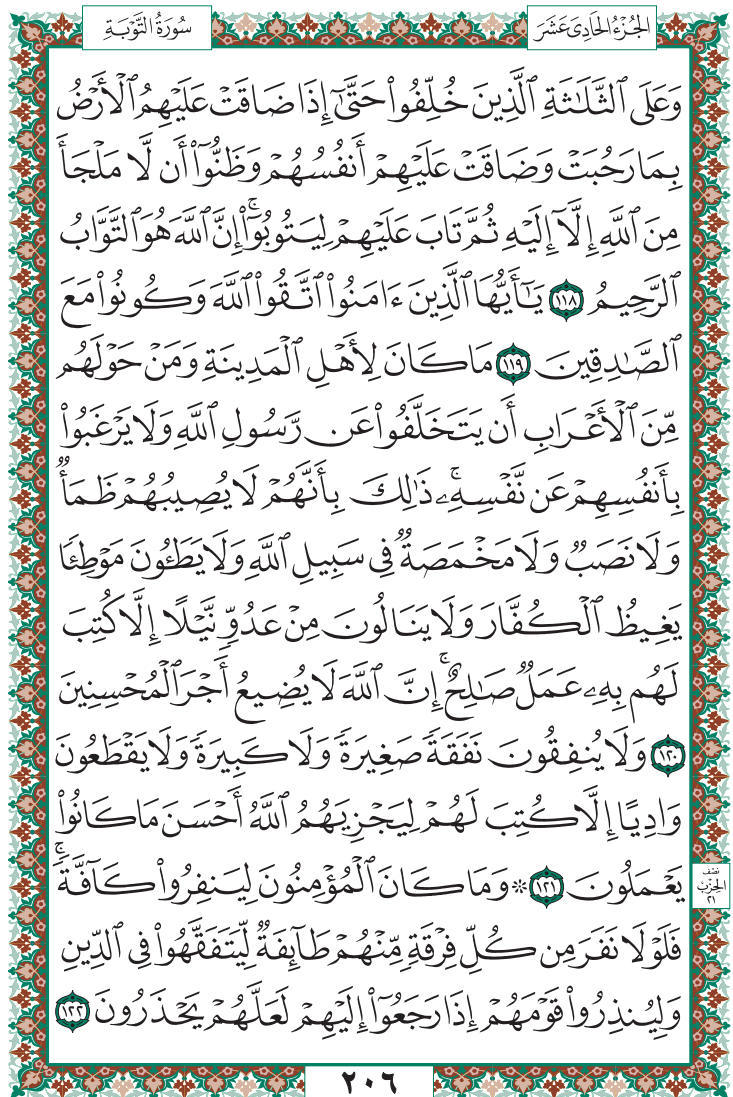 الجُزْءُ الحَادِىَ عَشَرَ
سُورَةُ التَّوْبَةِ
وَعَلَى ٱلثَّلَٰثَةِ ٱلَّذِينَ خُلِّفُوا۟ حَتَّىٰٓ إِذَا ضَاقَتْ عَلَيْهِمُ ٱلْأَرْضُ
بِمَا رَحُبَتْ وَضَاقَتْ عَلَيْهِمْ أَنفُسُهُمْ وَظَنُّوٓا۟ أَن لَّا مَلْجَأَ
مِنَ ٱللَّهِ إِلَّآ إِلَيْهِ ثُمَّ تَابَ عَلَيْهِمْ لِيَتُوبُوٓا۟ ۚ إِنَّ ٱللَّهَ هُوَ ٱلتَّوَّابُ
ٱلرَّحِيمُ ١١٨ يَٰٓأَيُّهَا ٱلَّذِينَ ءَامَنُوا۟ ٱتَّقُوا۟ ٱللَّهَ وَكُونُوا۟ مَعَ
ٱلصَّٰدِقِينَ ١١٩ مَا كَانَ لِأَهْلِ ٱلْمَدِينَةِ وَمَنْ حَوْلَهُم
مِّنَ ٱلْأَعْرَابِ أَن يَتَخَلَّفُوا۟ عَن رَّسُولِ ٱللَّهِ وَلَا يَرْغَبُوا۟
بِأَنفُسِهِمْ عَن نَّفْسِهِۦ ۚ ذَٰلِكَ بِأَنَّهُمْ لَا يُصِيبُهُمْ ظَمَأٌ
وَلَا نَصَبٌ وَلَا مَخْمَصَةٌ فِى سَبِيلِ ٱللَّهِ وَلَا يَطَـُٔونَ مَوْطِئًا
يَغِيظُ ٱلْكُفَّارَ وَلَا يَنَالُونَ مِنْ عَدُوٍّ نَّيْلًا إِلَّا كُتِبَ
لَهُم بِهِۦ عَمَلٌ صَٰلِحٌ ۚ إِنَّ ٱللَّهَ لَا يُضِيعُ أَجْرَ ٱلْمُحْسِنِينَ
١٢٠ وَلَا يُنفِقُونَ نَفَقَةً صَغِيرَةً وَلَا كَبِيرَةً وَلَا يَقْطَعُونَ
وَادِيًا إِلَّا كُتِبَ لَهُمْ لِيَجْزِيَهُمُ ٱللَّهُ أَحْسَنَ مَا كَانُوا۟
يَعْمَلُونَ ١٢١ ۞ وَمَا كَانَ ٱلْمُؤْمِنُونَ لِيَنفِرُوا۟ كَآفَّةً ۚ
نصف
الحزب
٢١
فَلَوْلَا نَفَرَ مِن كُلِّ فِرْقَةٍ مِّنْهُمْ طَآئِفَةٌ لِّيَتَفَقَّهُوا۟ فِى ٱلدِّينِ
وَلِيُنذِرُوا۟ قَوْمَهُمْ إِذَا رَجَعُوٓا۟ إِلَيْهِمْ لَعَلَّهُمْ يَحْذَرُونَ ١٢٢
٢٠٦